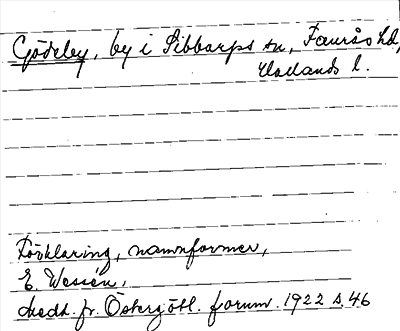 Gödeby, by i Sibbarps sn, Faurås hd,
Hallands l.
Förklaring, namnformer,
E. Wessén,
Medd. fr. Östergötl. fornm. 1922 s. 46